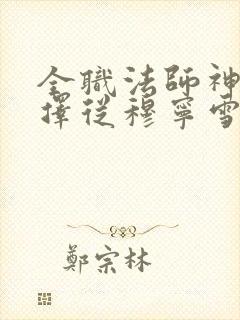 全職法師神
擇從穆寧雪
鄭宗林